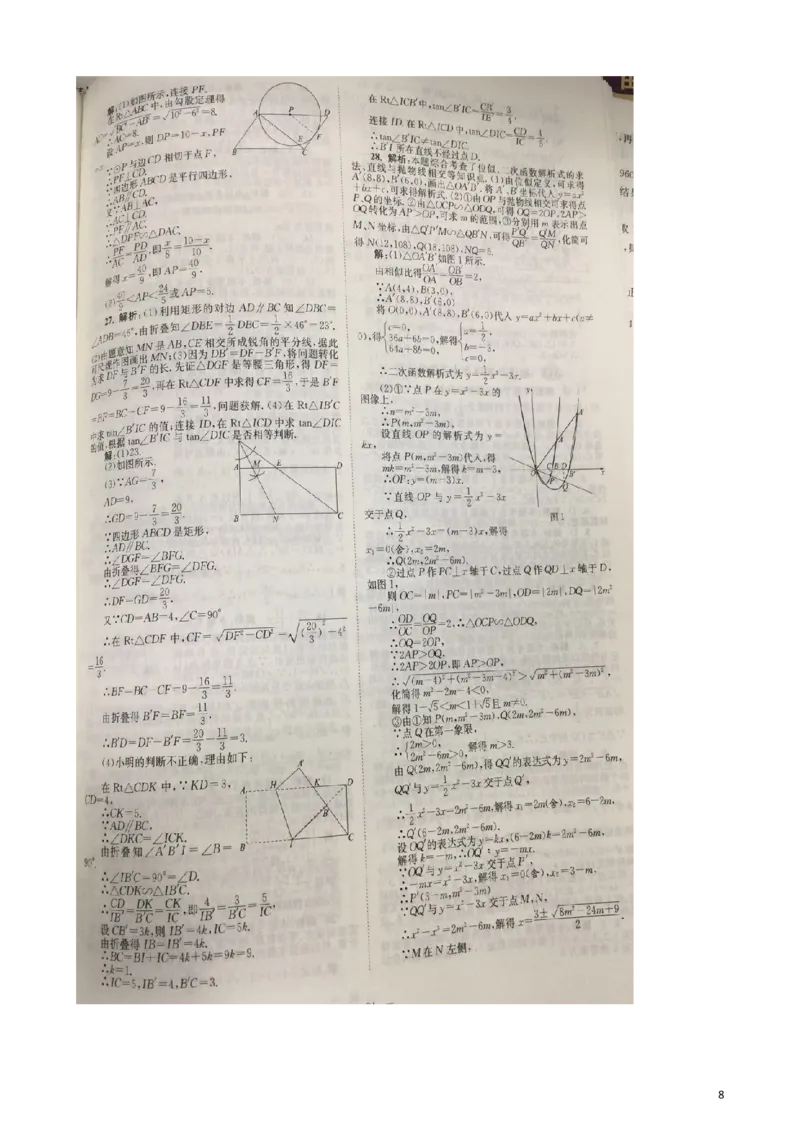 解:(1)如图所示,连接 PF.
在Rt△ABC中,由勾股定理得
AC=√BC²-AB²=√10²-6²=8.
∴AC=8.
设AP=x,则 DP=10-x,PF
∵⊙P与边CD相切于点F,
∴PF⊥CD.
∵四边形ABCD是平行四边形,
∴AB∥CD.
又∵AB⊥AC,
∴AC⊥CD.
∴PF∥AC.
∴△DPF∽△DAC.
∴PF/AC=PD/AD,即x/8=10-x/10,
解得x=40/9,即AP=40/9.
(2)40/9<AP<24/5或AP=5.
27. 解析:(1)利用矩形的对边 AD∥BC 知∠DBC=
∠ADB=46°,由折叠知∠DBE=1/2 DBC=1/2×46°=23°.
(2)由题意知 MN 是 AB,CE 相交所成锐角的平分线,据此
可尺规作图画出 MN;(3)因为 DB′=DF-B′F,将问题转化
为求 DF 与 B′F 的长.先证△DGF 是等腰三角形,得 DF=
DG=9-7/3=20/3,再在 Rt△CDF 中求得 CF=16/3,于是 B′F
=BF=BC-CF=9-16/3=11/3,问题获解.(4)在 Rt△IB′C
中求 tan∠B′IC 的值;连接 ID,在 Rt△ICD 中求 tan∠DIC
的值,根据 tan∠B′IC 与 tan∠DIC 是否相等判断.
解:(1)23.
(2)如图所示.
(3)∵AG=7/3,
AD=9,
∴GD=9-7/3=20/3.
∵四边形 ABCD 是矩形,
∴AD∥BC.
∴∠DGF=∠BFG.
由折叠得∠BFG=∠DFG.
∴∠DGF=∠DFG.
∴DF=GD=20/3.
又∵CD=AB=4,∠C=90°
∴在 Rt△CDF 中,CF=√DF²-CD²=√(20/3)²-4²
=16/3.
∴BF=BC-CF=9-16/3=11/3.
由折叠得 B′F=BF=11/3,
∴B′D=DF-B′F=20/3-11/3=3.
(4)小明的判断不正确,理由如下:
在 Rt△CDK 中,∵KD=3,
CD=4,
∴CK=5.
∵AD∥BC,
∴∠DKC=∠ICK.
由折叠知∠A′B′I=∠B=
90°.
∴∠IB′C=90°=∠D.
∴△CDK∽△IB′C.
∴CD/IB′=DK/B′C=CK/IC,即4/IB′=3/B′C=5/IC,
设 CB′=3k,则 IB′=4k,IC=5k.
由折叠得 IB=IB′=4k.
∴BC=BI+IC=4k+5k=9k=9.
∴k=1.
∴IC=5,IB′=4,B′C=3.
在 Rt△ICB′中,tan∠B′IC=CB′/IB′=3/4,
连接 ID.在 Rt△ICD 中,tan∠DIC=CD/IC=4/5.
∴tan∠B′IC≠tan∠DIC.
∴B′I 所在直线不经过点 D.
28. 解析:本题综合考查了位似、二次函数解析式的求
法、直线与抛物线相交等知识点.(1)由位似定义,可求得
A′(8,8),B′(6,0),画出△OA′B′,将 A′、B′坐标代入 y=ax²
+bx+c,可求得解析式.(2)①由 OP 与抛物线相交可求得点
P、Q 的坐标.②由△OCP∽△ODQ,可得 OQ=2OP,2AP>
OQ 转化为 AP>OP,可求 m 的范围,③分别用 m 表示出点
M、N 坐标,由△Q′P′M∽△QB′N,可得P′Q′/QB′=Q′M/QN,化简可
得 N(12,108),Q(18,108),NQ=6.
解:(1)△OA′B′如图1所示.
由相似比得OA′/OA=OB′/OB=2,
∵A(4,4),B(3,0),
∴A′(8,8),B′(6,0)
将 O(0,0),A′(8,8),B′(6,0)代入 y=ax²+bx+c(a≠
0),得{c=0, 36a+6b=0, 64a+8b=0, 解得{a=1/2, b=-3, c=0,
∴二次函数解析式为 y=1/2x²-3x.
(2)①∵点 P 在 y=x²-3x 的
图像上,
∴n=m²-3m,
∴P(m,m²-3m).
设直线 OP 的解析式为 y=
kx,
将点 P(m,m²-3m)代入,得
mk=m²-3m,解得 k=m-3,
∴OP:y=(m-3)x.
∵直线 OP 与 y=1/2x²-3x
交于点 Q,
图1
∴1/2x²-3x=(m-3)x,解得
x₁=0(舍),x₂=2m,
∴Q(2m,2m²-6m).
②过点 P 作 PC⊥x 轴于 C,过点 Q 作 QD⊥x 轴于 D,
如图1,
则 OC=|m|,PC=|m²-3m|,OD=|2m|,DQ=|2m²
-6m|,
∴OD/OC=OQ/OP=2.∴△OCP∽△ODQ,
∴OQ=2OP,
∵2AP>OQ,
∴2AP>2OP,即 AP>OP,
∴√(m-4)²+(m²-3m-4)²>√m²+(m²-3m)²,
化简得 m²-2m-4<0,
解得 1-√5<m<1+√5且 m≠0.
③由①知 P(m,m²-3m),Q(2m,2m²-6m),
∵点 Q 在第一象限,
∴{2m>0, 2m²-6m>0, 解得 m>3.
由 Q(2m,2m²-6m),得 QQ′的表达式为 y=2m²-6m,
QQ′与 y=1/2x²-3x 交于点 Q′,
∴1/2x²-3x=2m²-6m,解得 x₁=2m(舍),x₂=6-2m,
∴Q′(6-2m,2m²-6m).
设 OQ′的表达式为 y=kx,(6-2m)k=2m²-6m,
解得 k=-m,∴OQ′:y=-mx.
∵OQ′与 y=x²-3x 交于点 P′,
∴-mx=x²-3x,解得 x₁=0(舍),x₂=3-m,
∴P′(3-m,m²-3m)
∵QQ′与 y=x²-3x 交于点 M、N,
∴x²-x²=2m²-6m,解得 x=3±√8m²-24m+9/2.
∵M 在 N 左侧,
8